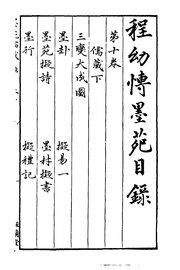 程幼愽墨苑目錄
第十卷
儒藏下
三變大成圖
墨卦 擬易一
墨苑擬詩 墨林擬書
墨行 擬禮記